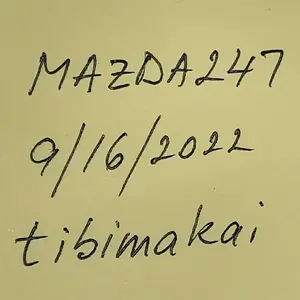 MAZDA247
9/16/2022
tibimakai